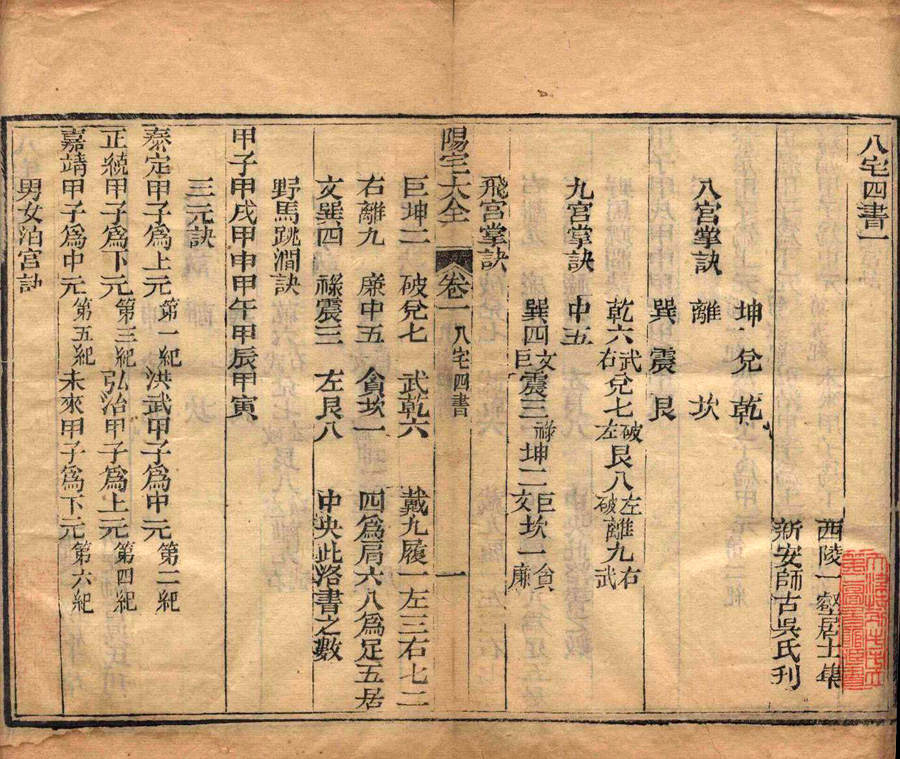 八宅四書一
西陵一壑居士集
新安師古吳氏刊
坤 兌 乾
八宮掌訣 離 坎
巽 震 艮
乾六武右兌七破左艮八左破離九右武
九宮掌訣 中五
巽四文巨震三祿坤二巨文坎一貪廉
飛宮掌訣
陽宅大全 卷一 八宅四書 一
巨坤二 破兌七 武乾六 戴九履一左三右七二
右離九 廉中五 貪坎一 四爲肩六八爲足五居
文巽四 祿震三 左艮八 中央此洛書之數
野馬跳澗訣
甲子甲戌甲申甲午甲辰甲寅
三元訣
泰定甲子爲上元第一紀洪武甲子爲中元第二紀
正統甲子爲下元第三紀弘治甲子爲上元第四紀
嘉靖甲子爲中元第五紀未來甲子爲下元第六紀
男女泊宮訣